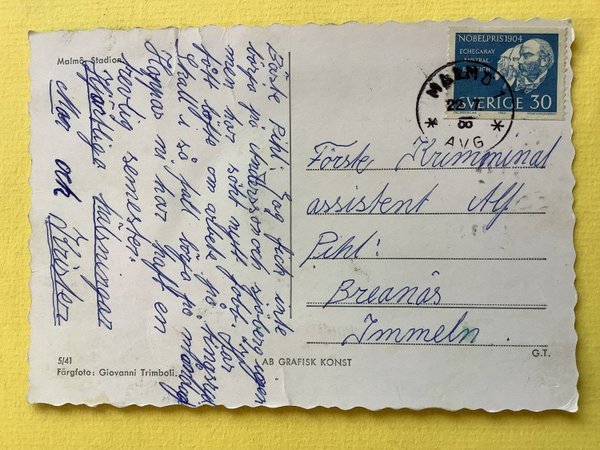 Malmö Stadion
Bäste Pihl: Jag fick inte
börja på och igen
men har sökt nytt jobb. Har
fått löfte om arbete på
så jag börja på måndag
Hoppas ni har haft en
härlig semester.
Hjärtliga hälsningar
Mor och Krister
5/41
Färgfoto: Giovanni Trimboli.
AB GRAFISK KONST
G.T.
NOBELPRIS 1904
ECHEGARAY
MISTRAL
SVERIGE 30
MALMÖ 1
AVG
Förste Krimminal
assistent Alf
Pihl:
Breanäs
Immeln